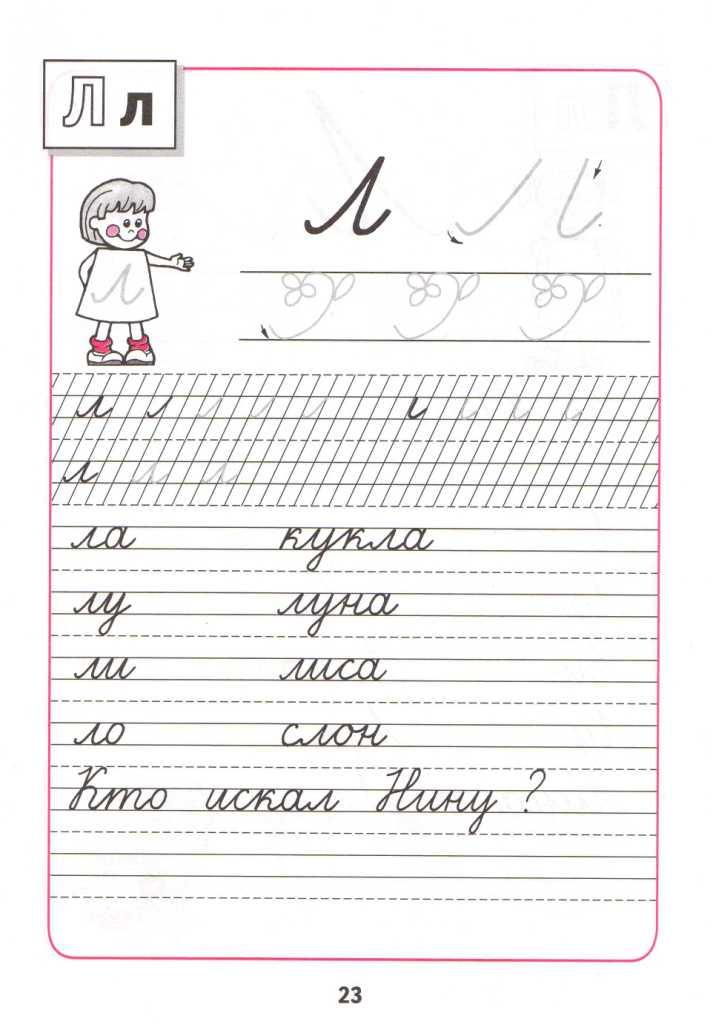 Л л
л
л
л л
ла кукла
лу луна
ли лиса
ло слон
Кто искал Нину ?
23